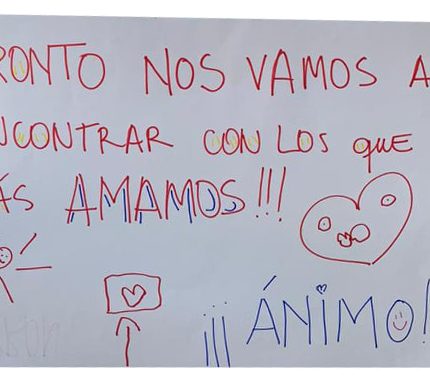 RONTO NOS VAMOS A
NCONTRAR CON LOS QUE
ÁS AMAMOS!!!
¡¡¡ ÁNIMO!